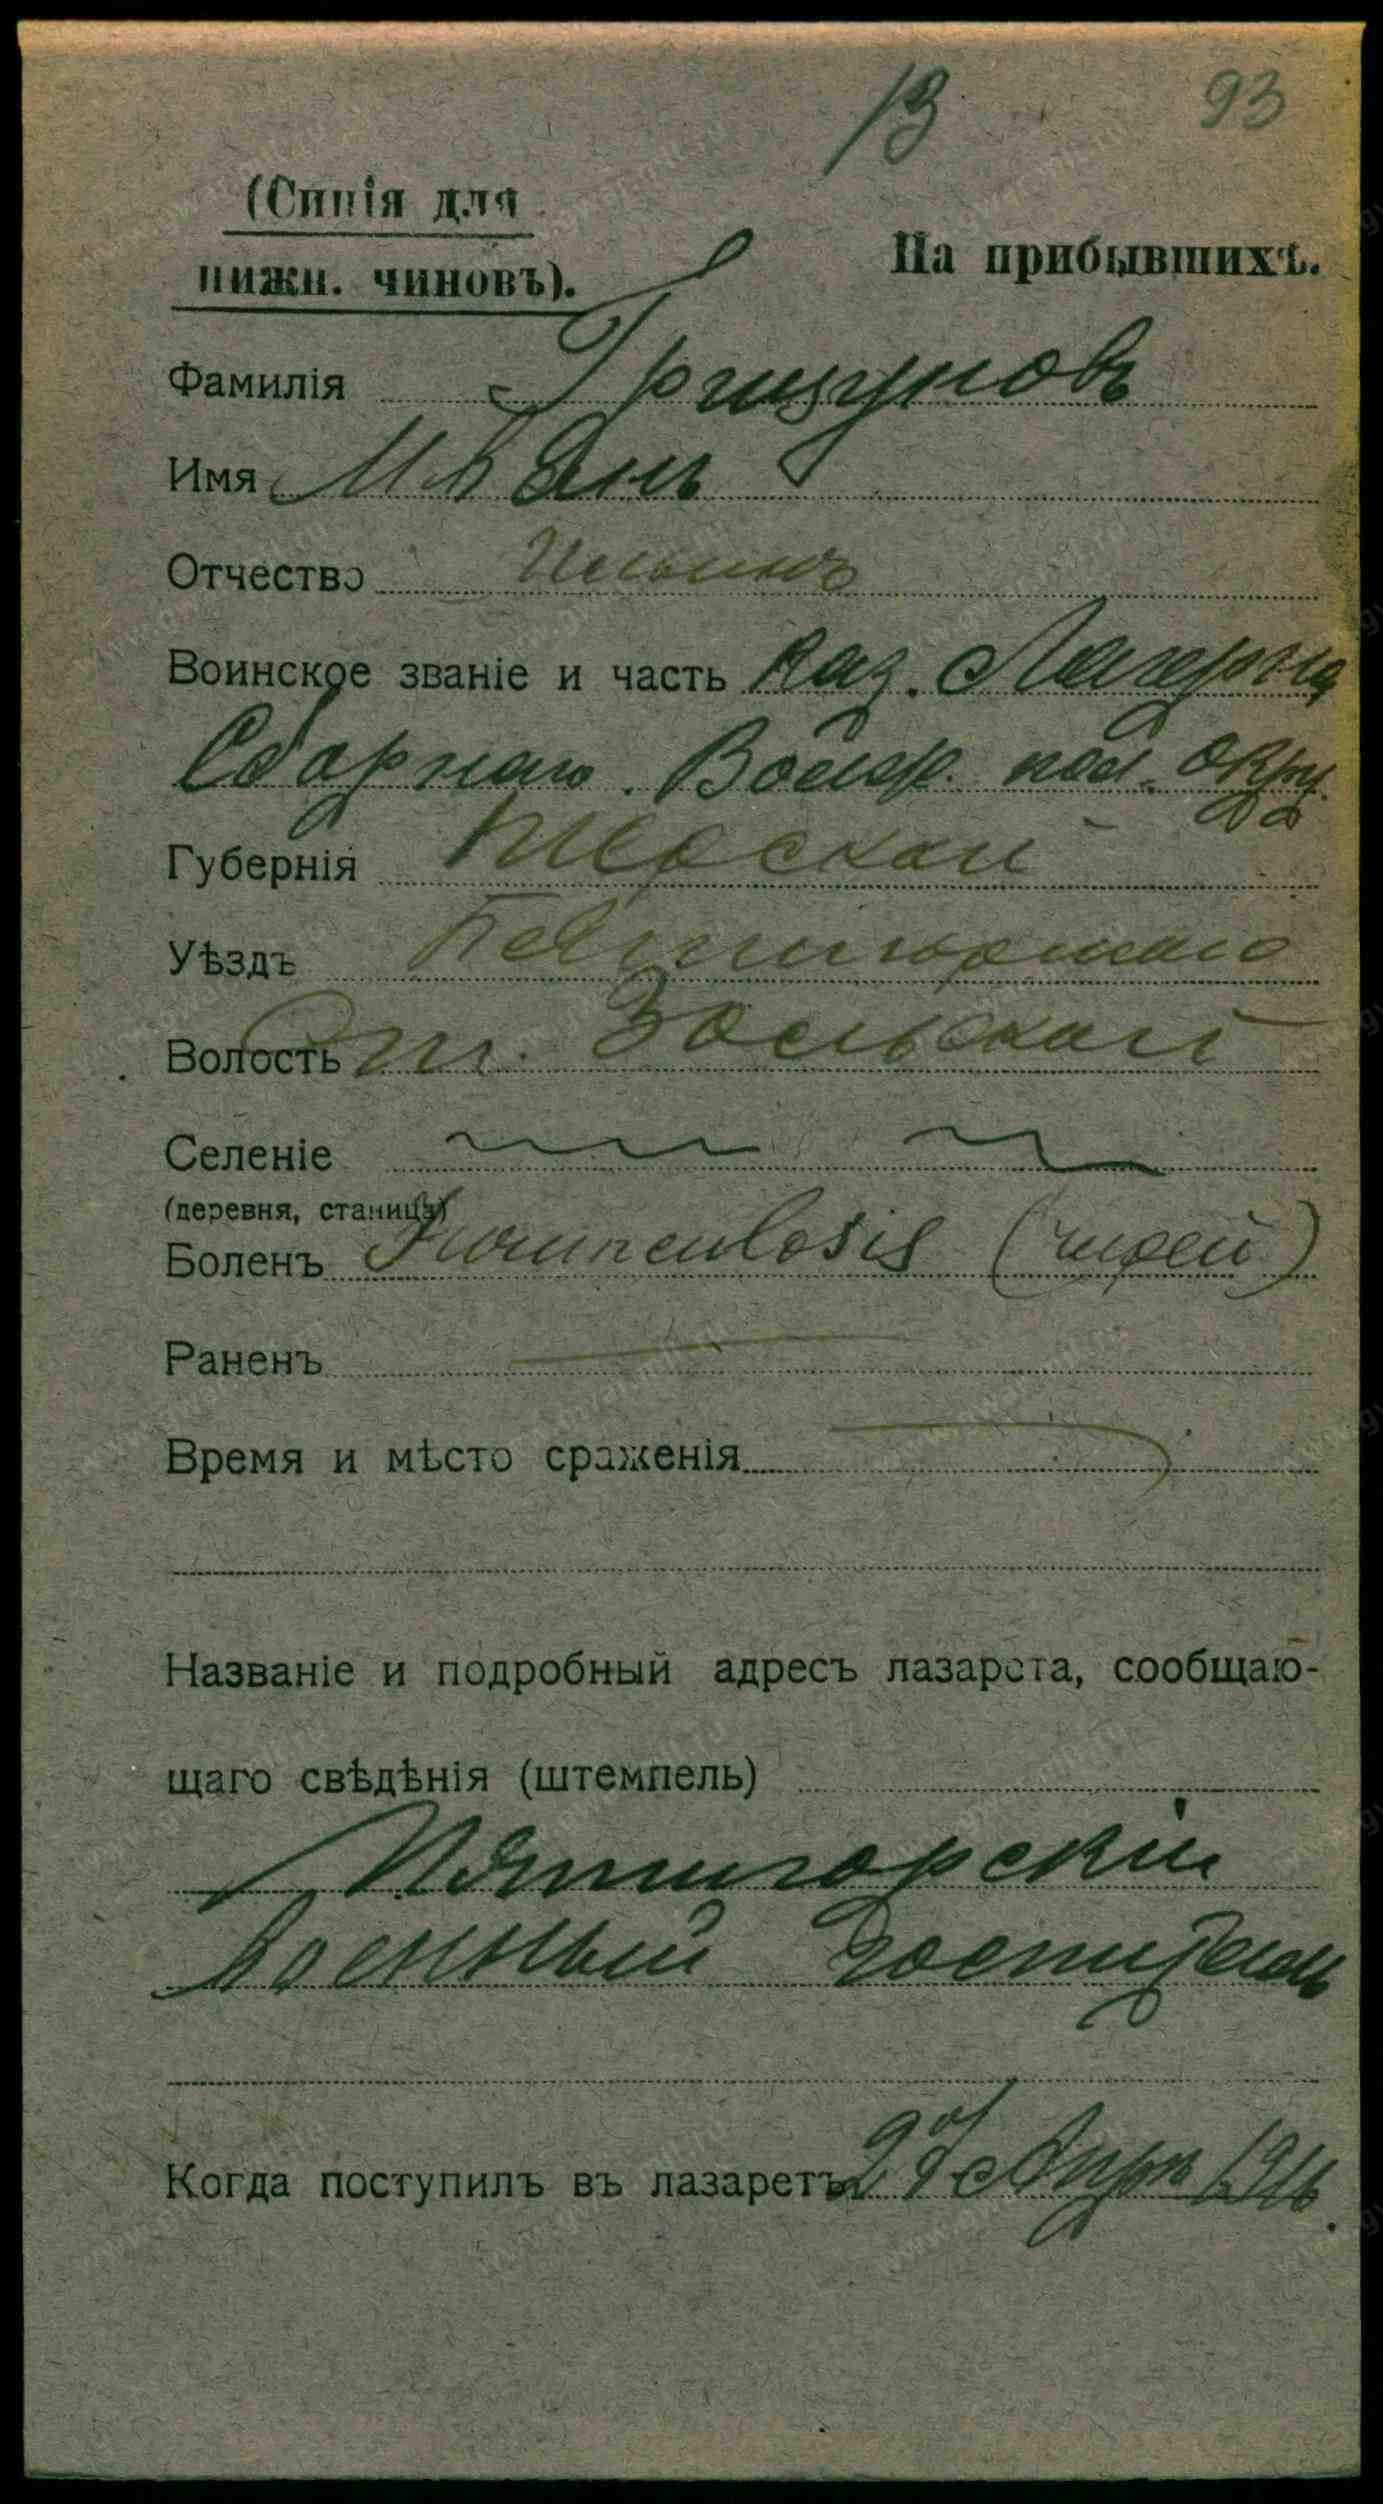 13 93
(Синія для
нижн. чиновъ).
На прибывшихъ.
Фамилія Гризуновъ
Имя Иванъ
Отчество Ильинъ
Воинское званіе и часть Каз. Лагерна
Сборнаго окру
Губернія Терской
Уѣздъ Пятигорскаго
Волость Ст. Зольской
Селеніе
(деревня, станица)
Боленъ Furunculosis (чирей)
Раненъ
Время и мѣсто сраженія
Названіе и подробный адресъ лазарета, сообщаю-
щаго свѣдѣнія (штемпель)
Пятигорскій
Военный Госпиталь
Когда поступилъ въ лазаретъ Апрѣ 1916